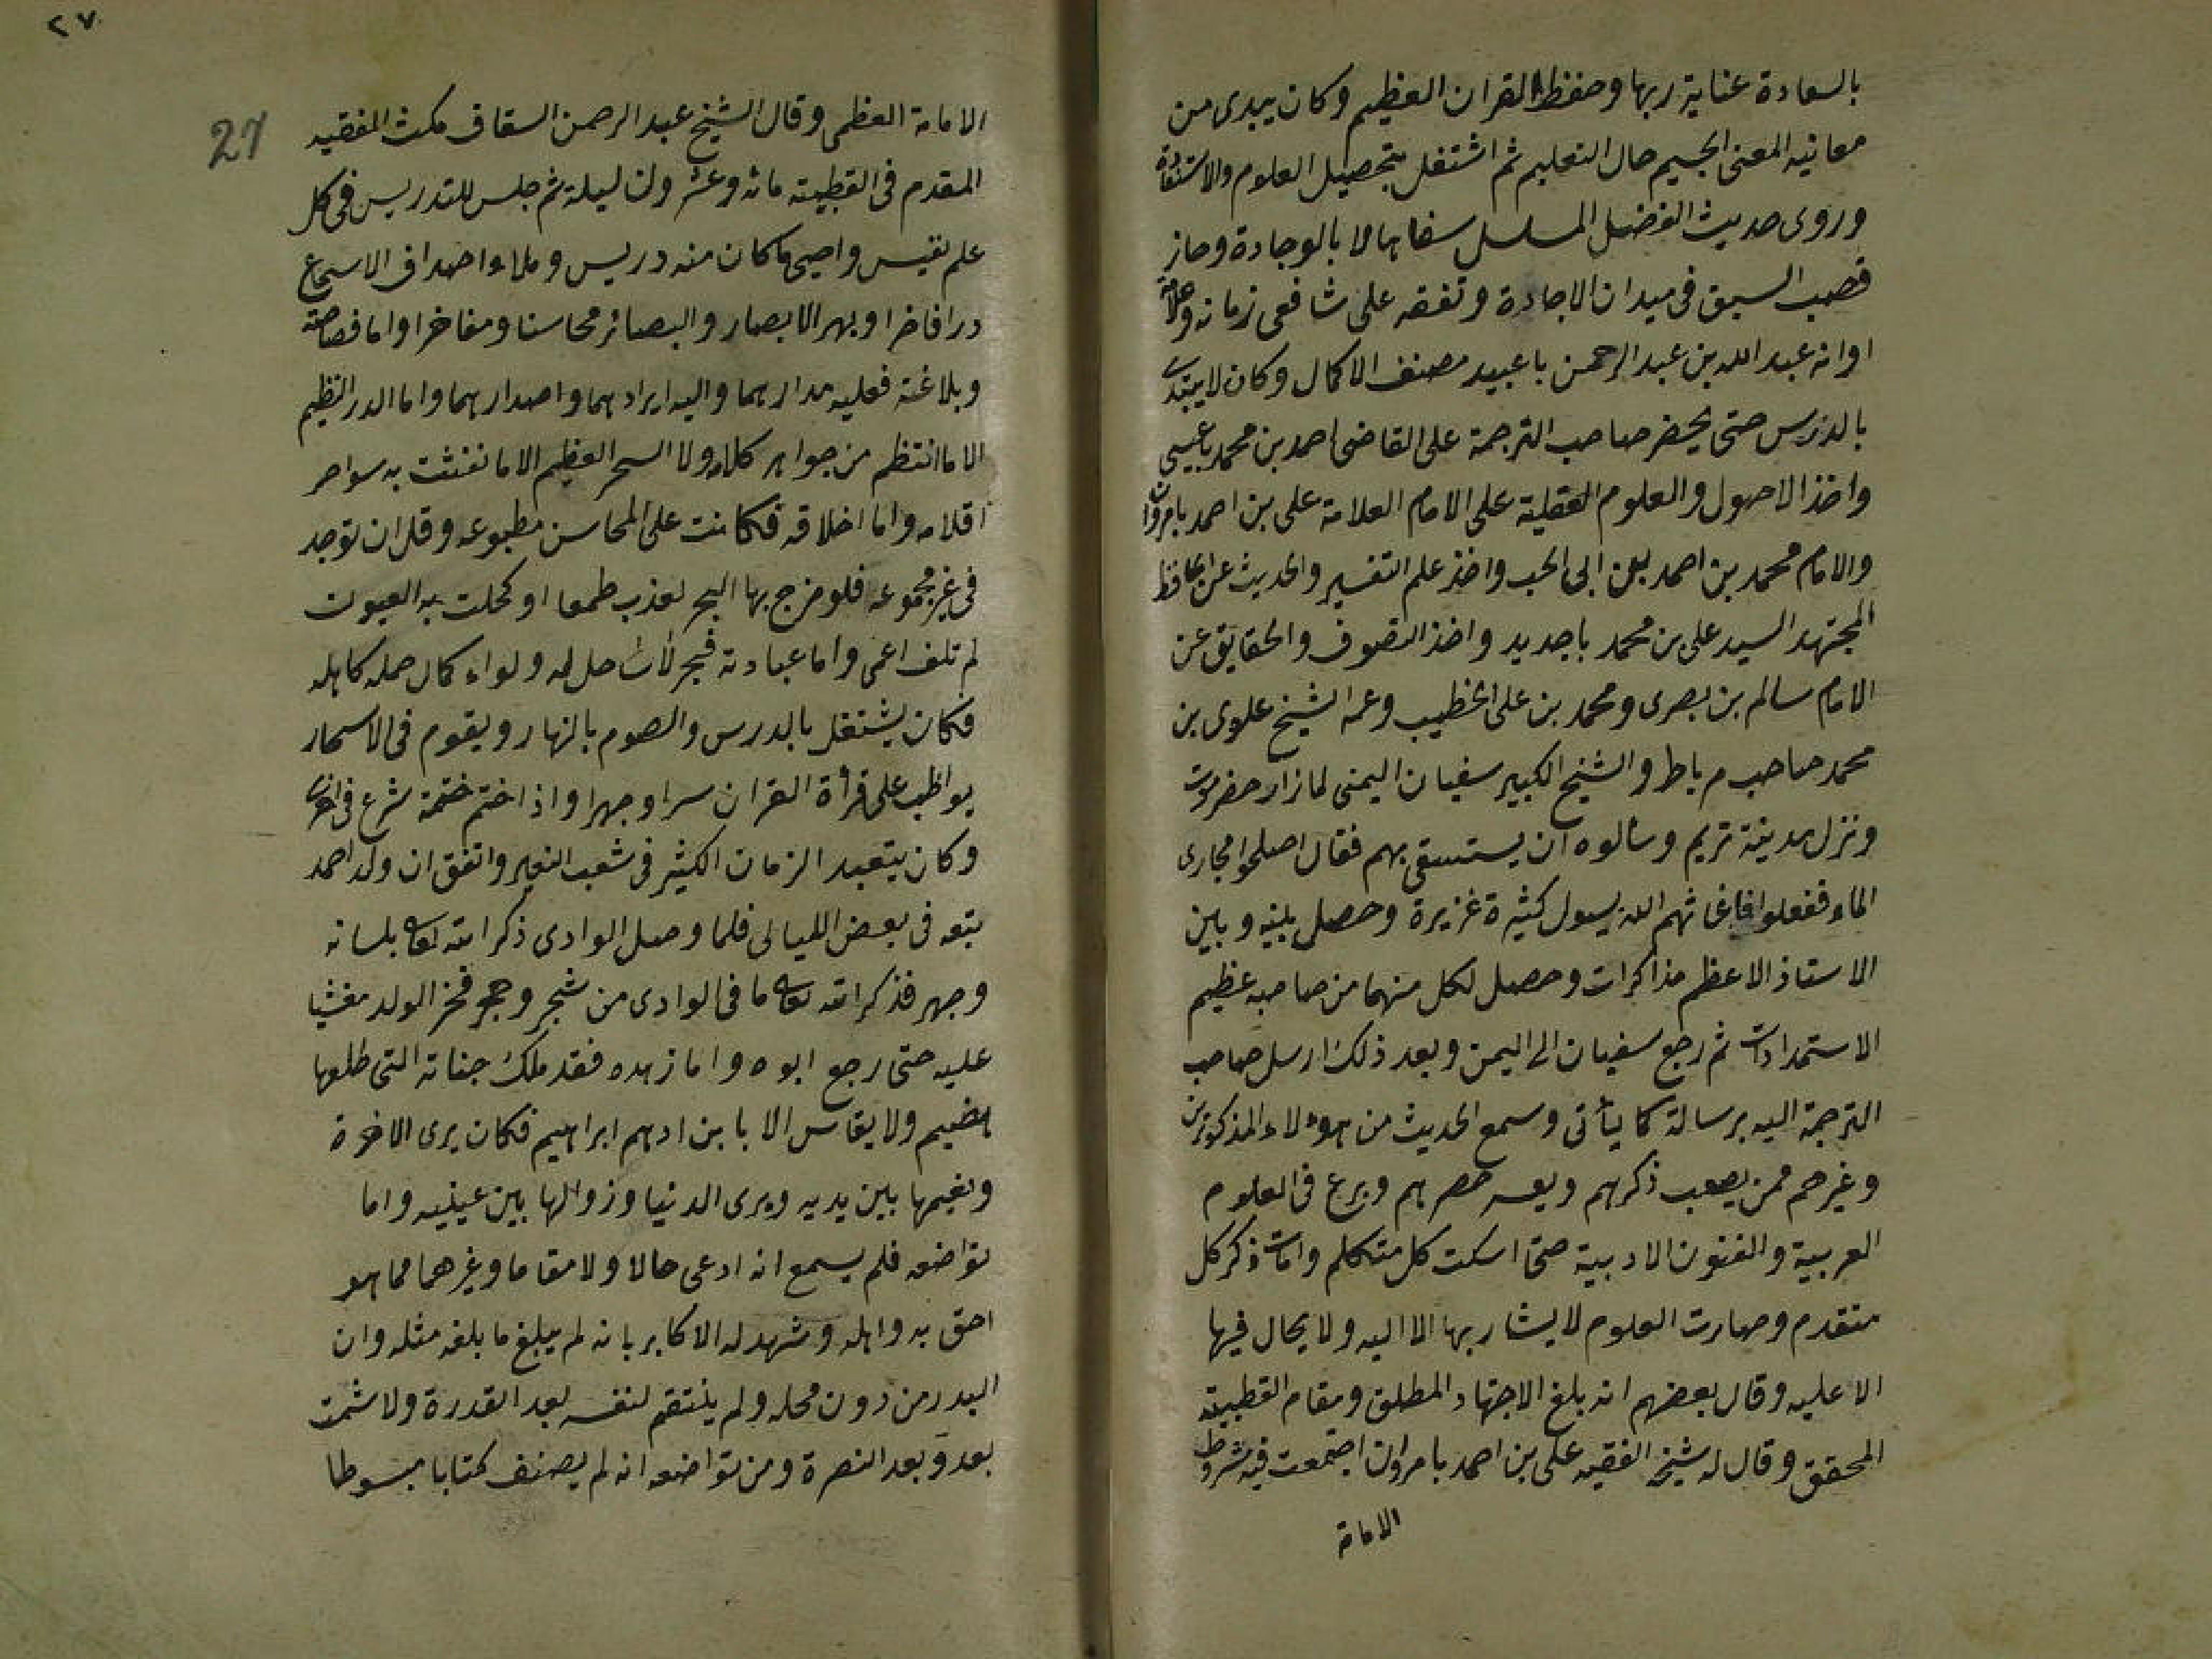 بالسعادة عناية ربها وحفظ القران العظيم وكان يبدى من
معانيه المعنى الجسيم حال التعليم ثم اشتغل بتحصيل العلوم والاستفادة
وروى حديث الفضل المسلسل سفاها لا بالوجادة وحاز
قصب السبق فى ميدان الاجادة وتفقه على شافعى زمانه وعلامة
اوانه عبد الله بن عبد الرحمن باعبيد مصنف الاكمال وكان لا يبتدى
بالدرس حتى يحضر صاحب الترجمة على القاضى احمد بن محمد باعيسى
واخذ الاصول والعلوم العقلية على الامام العلامة على بن احمد بامروان
والامام محمد بن احمد بن ابى الحب واخذ علم التفسير والحديث عن الحافظ
المجتهد السيد على بن محمد باجديد واخذ التصوف والحقايق عن
الامام سالم بن بصرى ومحمد بن على الخطيب وعمه الشيخ علوى بن
محمد صاحب مرباط والشيخ الكبير سفيان اليمنى لما زار حضرموت
ونزل مدينة تريم وسألوه ان يستسقى بهم فقال اصلحوا مجارى
الماء ففعلوا فاغاثهم الله بسول كثيرة غزيرة وحصل بينه وبين
الاستاذ الاعظم مذاكرات وحصل لكل منهما من صاحبه عظيم
الاستمدادات ثم رجع سفيان الى اليمن وبعد ذلك ارسل صاحب
الترجمة اليه برسالة كما يأتى وسمع الحديث من هؤلاء المذكورين
وغيرهم ممن يصعب ذكرهم ويعسر حصرهم وبرع فى العلوم
العربية والفنون الادبية حتى اسكت كل متكلم وامات ذكر كل
متقدم وصارت العلوم لا يشار بها الا اليه ولا يحال فيها
الا عليه وقال بعضهم انه بلغ الاجتهاد المطلق ومقام القطبية
المحقق وقال له شيخه الفقيه على بن احمد بامروان اجتمعت فيه شروط
الامامة
٢٧
27
الامامة العظمى وقال الشيخ عبد الرحمن السقاف مكث الفقيه
المقدم فى القطبية مائه وعشرون ليلة ثم جلس للتدريس فى كل
علم نفيس واحيى ما كان منه دريس وملاء اصداف الاسماع
درا فاخرا وبهر الابصار والبصائر محاسنا ومفاخرا واما فصاحته
وبلاغته فعليه مدارهما واليه ايرادهما واصدارهما واما الدر النظيم
الا ما انتظم من جواهر كلامه ولا السحر العظيم الا ما نفثت به سواحر
اقلامه واما اخلاقه فكانت على المحاسن مطبوعه وقل ان توجد
فى غير مجموعه فلو مزج بها البحر لعذب طعما او كحلت به العيون
لم تلف اعمى واما عبادته فبحر لا ساحل له ولواء كمال حمله كاهله
فكان يشتغل بالدرس والصوم بالنهار ويقوم فى الاسحار
يواظب على قرأة القران سرا وجهرا واذا ختم ختمة شرع فى اخرى
وكان يتعبد الزمان الكثير فى شعب النعير واتفق ان ولد احمد
تبعه فى بعض الليالى فلما وصل الوادى ذكر الله تعالى بلسانه
وجهر فذكر الله تعالى ما فى الوادى من شجر وحجر فخر الولد مغشيا
عليه حتى رجع ابوه واما زهده فقد ملك جناته التى طلعها
هضيم ولا يقاس الا بابن ادهم ابراهيم فكان يرى الاخرة
ونعيمها بين يديه ويرى الدنيا وزوالها بين عينيه واما
تواضعه فلم يسمع انه ادعى حالا ولا مقاما وغيرهما مما هو
احق به واهله وشهد له الاكابر بانه لم يبلغ ما بلغه مثله وان
البدر من دون محله ولم ينتقم لنفسه بعد القدرة ولا شمت
بعدو بعد النصرة ومن تواضعه انه لم يصنف كتابا مبسوطا